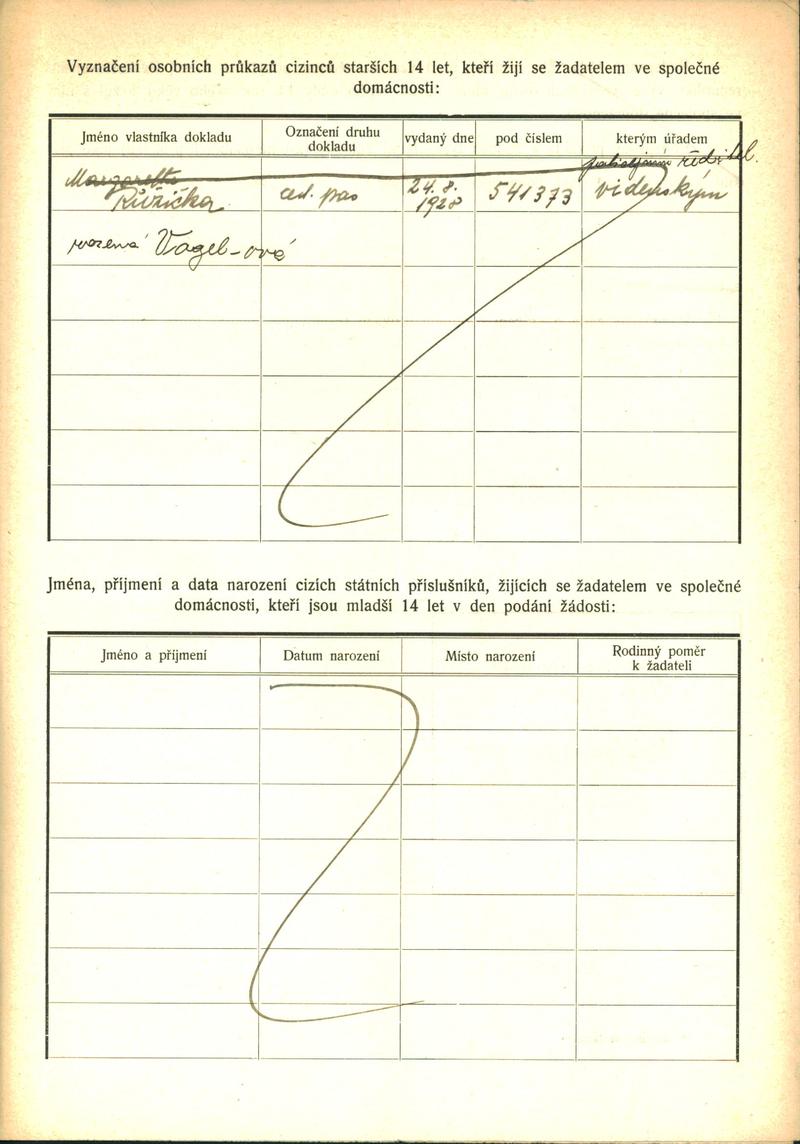 Vyznačení osobních průkazů cizinců starších 14 let, kteří žijí se žadatelem ve společné
domácnosti:
Jméno vlastníka dokladu
Označení druhu
dokladu
vydaný dne
pod číslem
kterým úřadem
Margaretta
Růžička
cest. pas
24. 8.
1928
541373
ředitel.
vídenským
rozená Vogel-ová
Jména, příjmení a data narození cizích státních příslušníků, žijících se žadatelem ve společné
domácnosti, kteří jsou mladší 14 let v den podání žádosti:
Jméno a příjmení
Datum narození
Místo narození
Rodinný poměr
k žadateli